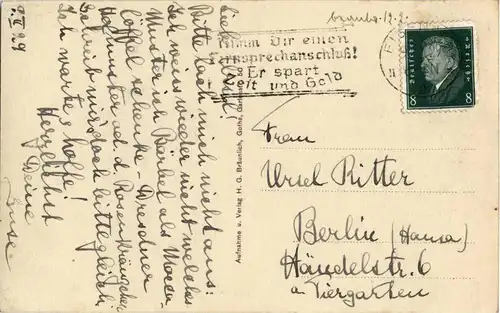 9.II.29
Liebe Ursel!
Bitte lach mich nicht aus:
Ich weiss wieder nicht welches
Muster ich Bärbel als Mocca-
löffel schenke - Dresdner
Hofmuster od. d. Rosenkränzchen
Schreib mir doch bitte gleich
Ich warte + hoffe!
Herzlichst
Deine
Nimm Dir einen
Fernsprechanschluß!
Er spart
Zeit und Geld
Deutsches Reich
8 8
Aufnahme u. Verlag H. G. Bräunlich, Gotha
Frau
Ursel Ritter
Berlin (Hansa)
Händelstr. 6
a. Tiergarten